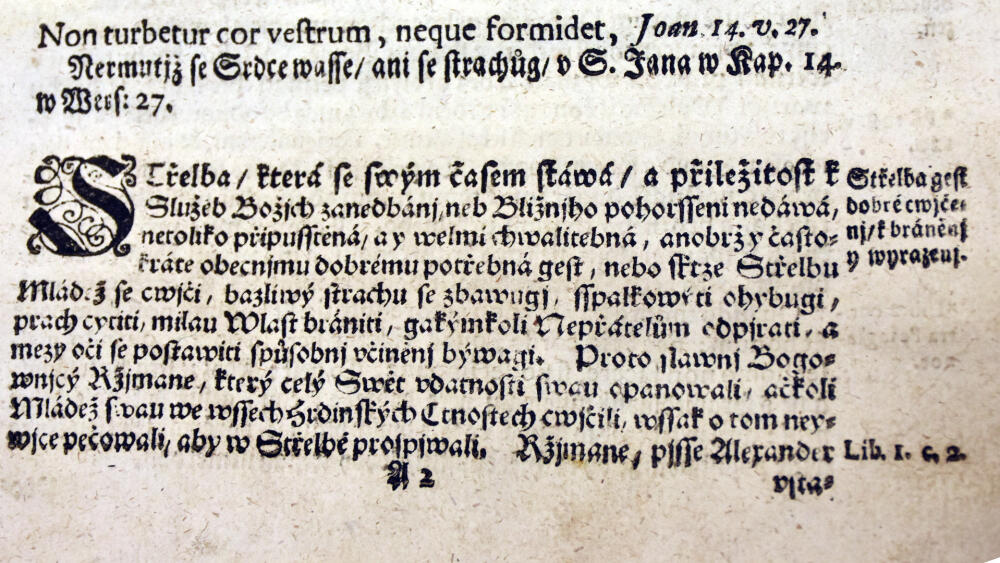 Non turbetur cor vestrum, neque formidet, Joan 14. v. 27.
Nermutjž se Srdce wasse/ ani se strachůg/ v S. Jana w Kap. 14.
w Wers: 27.
STřelba/ kterά se swým časem stáwá/ a přiležitost k
Služeb Božjch zanedbánj, neb Bližnjho pohorssení nedáwá,
netoliko připusstěná/ a y welmi chwalitebná, anobrž y často-
kráte obecnjmu dobrému potřebná gest, nebo skrze Střelbu
Mládež se cwjčí, bazliwý strachu se zbawugj, sspalkowíti ohybugj,
prach cytiti, milau Wlast brániti, gakýmkoli Nepřátelům odpjrati, a
mezy oči se postawiti spůsobnj včiněnj býwagi. Proto slawnj Bogo-
wnjcý Ržjmane, který celý Swět vdatnosti swau opanowali, ačkoli
Mládež swau we wssech Hrdinských Ctnostech cwjčili, wssak o tom ney-
wjce pečowali, aby w Střelbě prospjwali. Ržjmane, pjsse Alexander
A 2
vita-
Střelba gest
dobré cwjče-
nj/ k bráněnj
y wyraženj.
Lib. 1. c. 2.